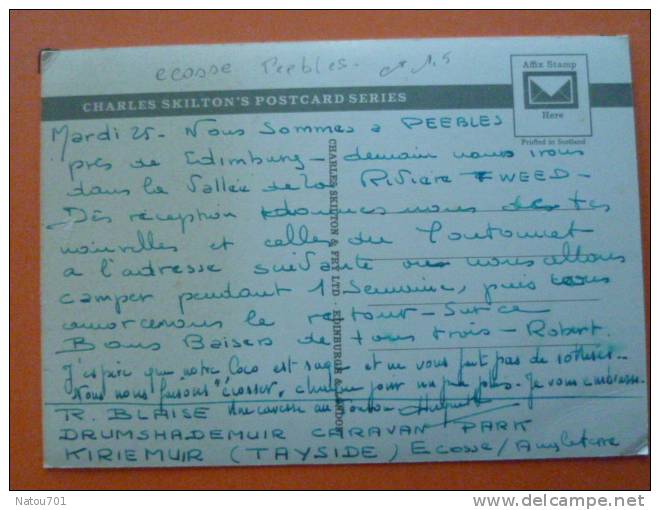 ecosse Peebles.
Affix Stamp
Here
Printed in Scotland
CHARLES SKILTON'S POSTCARD SERIES
CHARLES SKILTON & FRY LTD · EDINBURGH & LONDON
Mardi 25 - Nous sommes a PEEBLES
près de Edimburg - demain nous irons
dans la Vallée de la Rivière TWEED -
Dès réception donnes nous des tes
nouvelles et celles du Toutounet
a l'adresse suivante ou nous allons
camper pendant 1 Semaine, puis nous
amorcerons le retour - Sur ce
Bons Baisers de tous trois - Robert.
J'espère que notre Coco est sage et ne vous fait pas de
Nous nous faisons "écosser" chaque jour un peu plus. Je vous embrasse
R. BLAISE Une caresse au Toutou
DRUMSHADEMUIR CARAVAN PARK
KIRIEMUIR (TAYSIDE) Ecosse/Angleterre
Natou701